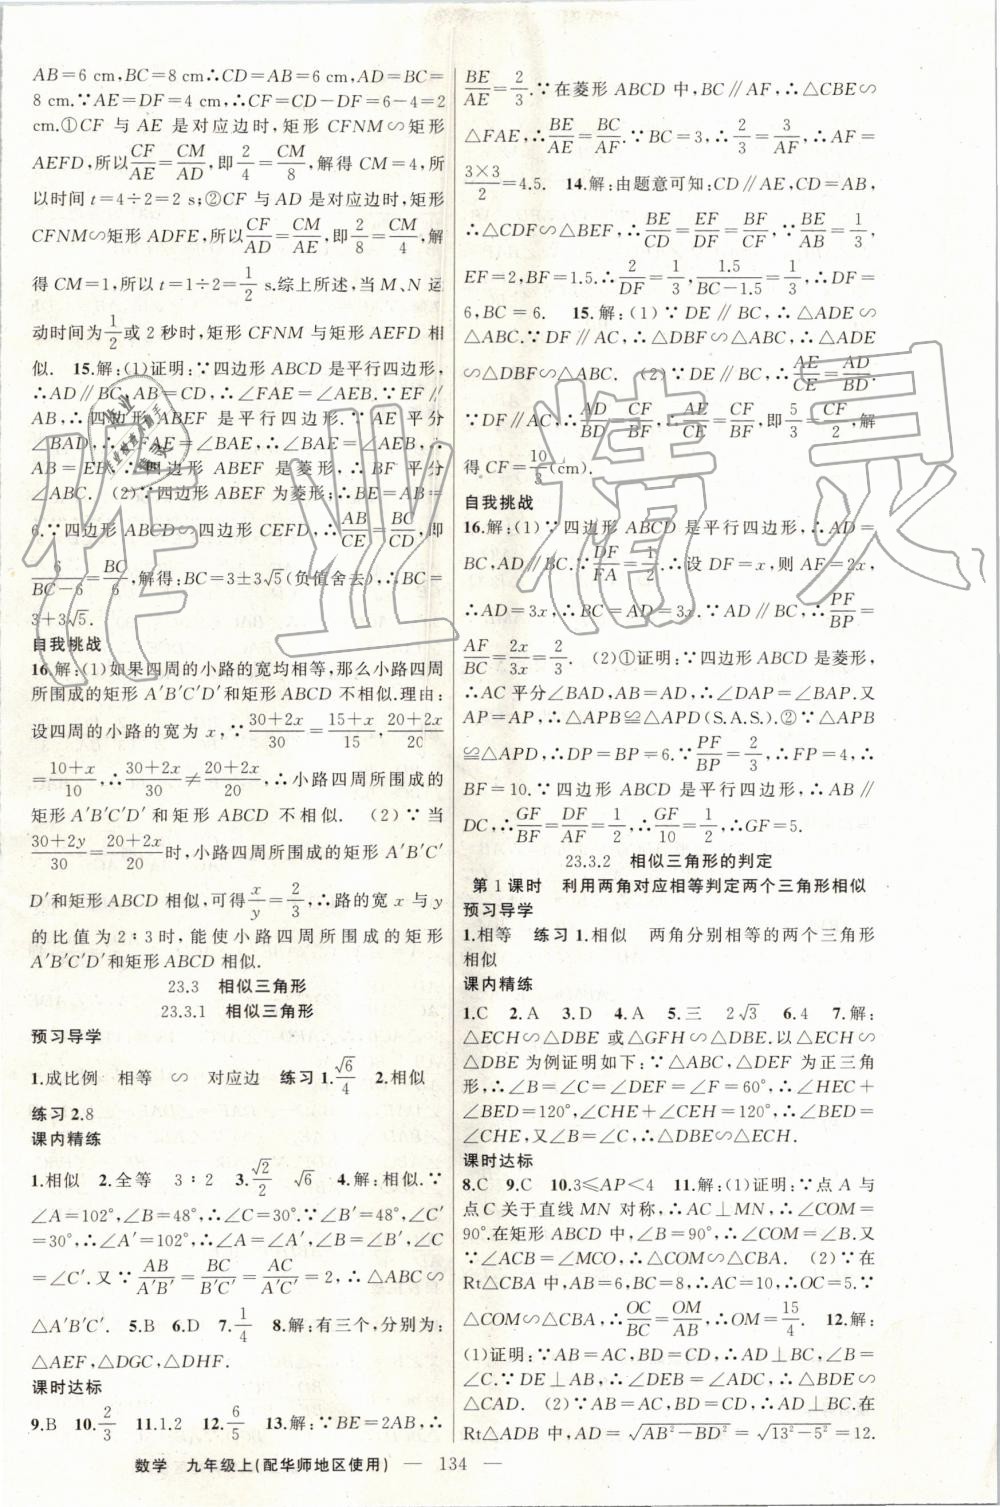 AB=6 cm,BC=8 cm∴CD=AB=6 cm,AD=BC=
8 cm.∵AE=DF=4 cm,∴CF=CD-DF=6-4=2
cm.①CF 与 AE 是对应边时,矩形 CFNM∽矩形
AEFD,所以CF/AE=CM/AD,即2/4=CM/8,解得 CM=4,所
以时间 t=4÷2=2 s;②CF 与 AD 是对应边时,矩形
CFNM∽矩形 ADFE,所以CF/AD=CM/AE,即2/8=CM/4,解
得 CM=1,所以 t=1÷2=1/2 s.综上所述,当 M、N 运
动时间为1/2或 2秒时,矩形 CFNM 与矩形 AEFD 相
似. 15.解:(1)证明:∵四边形 ABCD 是平行四边形,
∴AD∥BC,AB=CD,∴∠FAE=∠AEB.∵EF∥
AB,∴四边形 ABEF 是平行四边形.∵AE 平分
∠BAD,∴∠FAE=∠BAE,∴∠BAE=∠AEB,∴
AB=EB,∴四边形 ABEF 是菱形,∴BF 平分
∠ABC. (2)∵四边形 ABEF 为菱形;∴BE=AB=
6.∵四边形 ABCD∽四边形 CEFD,∴AB/CE=BC/CD,即
6/(BC-6)=BC/6,解得:BC=3±3√5(负值舍去),∴BC=
3+3√5.
自我挑战
16.解:(1)如果四周的小路的宽均相等,那么小路四周
所围成的矩形 A′B′C′D′和矩形 ABCD 不相似.理由:
设四周的小路的宽为 x,∵(30+2x)/30=(15+x)/15,(20+2x)/20
=(10+x)/10,∴(30+2x)/30≠(20+2x)/20,∴小路四周所围成的
矩形 A′B′C′D′和矩形 ABCD 不相似. (2)∵当
(30+2y)/30=(20+2x)/20时,小路四周所围成的矩形 A′B′C′
D′和矩形 ABCD 相似,可得x/y=2/3,∴路的宽 x 与 y
的比值为 2∶3时,能使小路四周所围成的矩形
A′B′C′D′和矩形 ABCD 相似.
23.3 相似三角形
23.3.1 相似三角形
预习导学
1.成比例 相等 ∽ 对应边 练习 1.√6/4 2.相似
练习 2.8
课内精练
1.相似 2.全等 3∶2 3.√2/2 √6 4.解:相似.∵
∠A=102°,∠B=48°,∴∠C=30°.∵∠B′=48°,∠C′
=30°,∴∠A′=102°,∴∠A=∠A′,∠B=∠B′,∠C
=∠C′.又∵AB/A′B′=BC/B′C′=AC/A′C′=2/1=2,∴△ABC∽
△A′B′C′. 5.B 6.D 7.1/4 8.解:有三个,分别为:
△AEF,△DGC,△DHF.
课时达标
9.B 10.2/3 11.1.2 12.6/5 13.解:∵BE=2AB,∴
BE/AE=2/3.∵在菱形 ABCD 中,BC∥AF,∴△CBE∽
△FAE,∴BE/AE=BC/AF.∵BC=3,∴2/3=3/AF,∴AF=
(3×3)/2=4.5. 14.解:由题意可知:CD∥AE,CD=AB,
∴△CDF∽△BEF,∴BE/CD=EF/DF=BF/CF,∵BE/AB=1/3,
EF=2,BF=1.5.∴2/DF=1/3,1.5/(BC-1.5)=1/3,∴DF=
6,BC=6. 15.解:(1)∵DE∥BC,∴△ADE∽
△ABC.∵DF∥AC,∴△DBF∽△ABC,∴△ADE
∽△DBF∽△ABC. (2)∵DE∥BC,∴AE/CE=AD/BD.
∵DF∥AC,∴AD/BD=CF/BF,∴AE/CE=CF/BF,即5/3=CF/2,解
得 CF=10/3(cm).
自我挑战
16.解:(1)∵四边形 ABCD 是平行四边形,∴AD=
BC,AD∥BC.∵DF/FA=1/2.∴设 DF=x,则 AF=2x,
∴AD=3x,∴BC=AD=3x.∵AD∥BC,∴PF/BP=
AF/BC=2x/3x=2/3. (2)①证明:∵四边形 ABCD 是菱形,
∴AC 平分∠BAD,AB=AD,∴∠DAP=∠BAP.又
AP=AP,∴△APB≌△APD(S.A.S.).②∵△APB
≌△APD,∴DP=BP=6.∵PF/BP=2/3,∴FP=4,∴
BF=10.∵四边形 ABCD 是平行四边形,∴AB∥
DC,∴GF/BF=DF/AF=1/2,∴GF/10=1/2,∴GF=5.
23.3.2 相似三角形的判定
第 1 课时 利用两角对应相等判定两个三角形相似
预习导学
1.相等 练习 1.相似 两角分别相等的两个三角形
相似
课内精练
1.C 2.A 3.D 4.A 5.三 2√3 6.4 7.解:
△ECH∽△DBE 或△GFH∽△DBE.以△ECH∽
△DBE 为例证明如下:∵△ABC,△DEF 为正三角
形,∴∠B=∠C=∠DEF=∠F=60°,∴∠HEC+
∠BED=120°,∠CHE+∠HEC=120°,∴∠BED=
∠CHE,又∠B=∠C,∴△DBE∽△ECH.
课时达标
8.C 9.C 10.3≤AP<4 11.解:(1)证明:∵点 A 与
点 C 关于直线 MN 对称,∴AC⊥MN,∴∠COM=
90°.在矩形 ABCD 中,∠B=90°,∴∠COM=∠B.又
∵∠ACB=∠MCO,∴△COM∽△CBA. (2)∵在
Rt△CBA 中,AB=6,BC=8,∴AC=10,∴OC=5.∵
△COM∽△CBA,∴OC/BC=OM/AB,∴OM=15/4. 12.解:
(1)证明:∵AB=AC,BD=CD,∴AD⊥BC,∠B=
∠C.∵DE⊥AB,∴∠DEB=∠ADC,∴△BDE∽
△CAD. (2)∵AB=AC,BD=CD,∴AD⊥BC.在
Rt△ADB 中,AD=√(AB²-BD²)=√(13²-5²)=12.
数学 九年级上(配华师地区使用) — 134 —
作业精灵